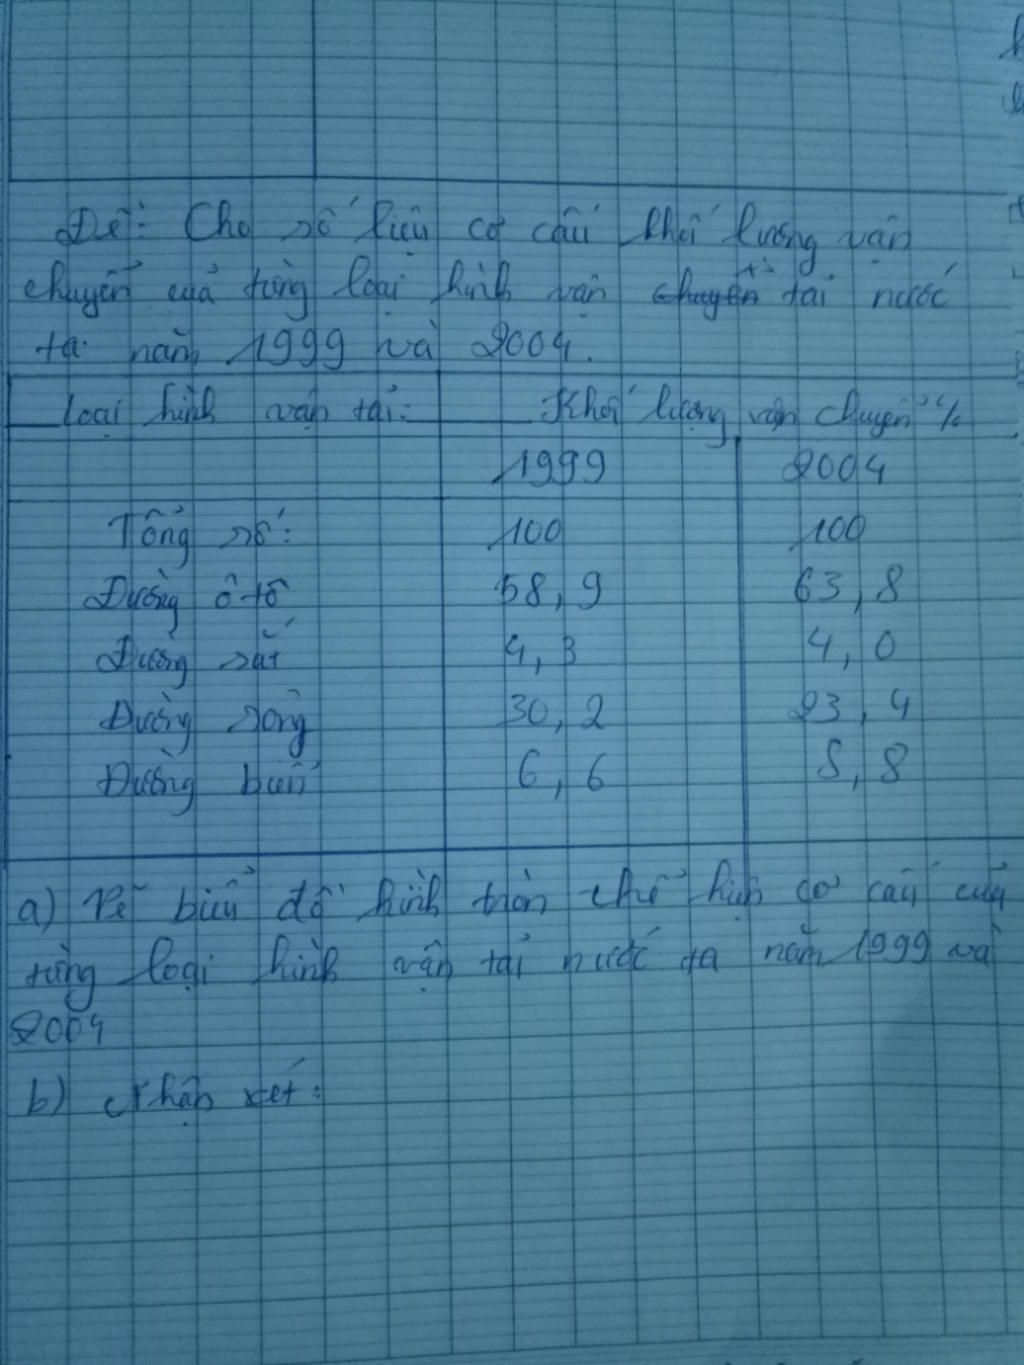 Đề: Cho số liệu cơ cấu khối lượng vận
chuyển của từng loại hình vận tải nước
ta năm 1999 và 2004.
Loại hình vận tải: Khối lượng vận chuyển %
1999 2004
Tổng số: 100 100
Đường ô tô 58,9 63,8
Đường sắt 4,3 4,0
Đường sông 30,2 23,4
Đường biển 6,6 8,8
a) Vẽ biểu đồ hình tròn thể hiện cơ cấu của
từng loại hình vận tải nước ta năm 1999 và
2004
b) Nhận xét: